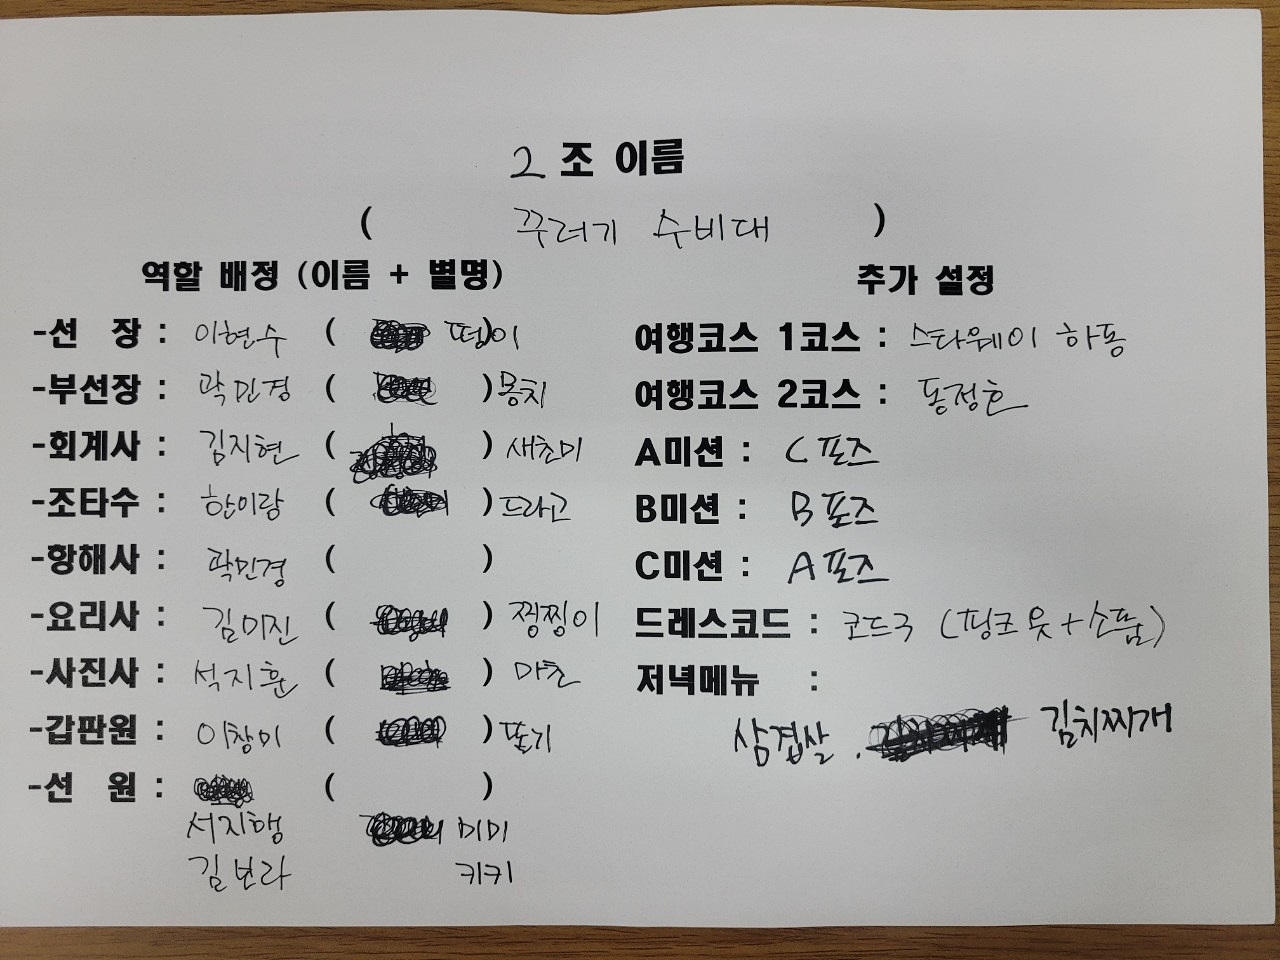 2 조 이름
( 꾸러기 수비대 )
역할 배정 (이름 + 별명)
-선 장 : 이현수 ( 떵)이
-부선장 : 곽민경 ( ) 몽치
-회계사 : 김지현 ( ) 새초미
-조타수 : 한이랑 ( ) 드라고
-항해사 : 곽민경 ( )
-요리사 : 김미진 ( ) 찡찡이
-사진사 : 석지훈 ( ) 마초
-갑판원 : 이창미 ( ) 똘기
-선 원 : ( )
서지행 미미
김보라 키키
추가 설정
여행코스 1코스 : 스타웨이 하동
여행코스 2코스 : 동정호
A미션 : C포즈
B미션 : B포즈
C미션 : A포즈
드레스코드 : 코드구 (핑크 옷+소품)
저녁메뉴 :
삼겹살. 김치찌개